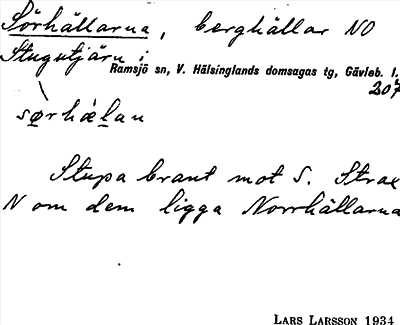 Sörhällarna, berghällar NO
Stugutjärn i
Ramsjö sn, V. Hälsinglands domsagas tg, Gävleb. l.
207
sørhæ̀lan
Stupa brant mot S. Strax
N om dem ligga Norrhällarna
LARS LARSSON 1934